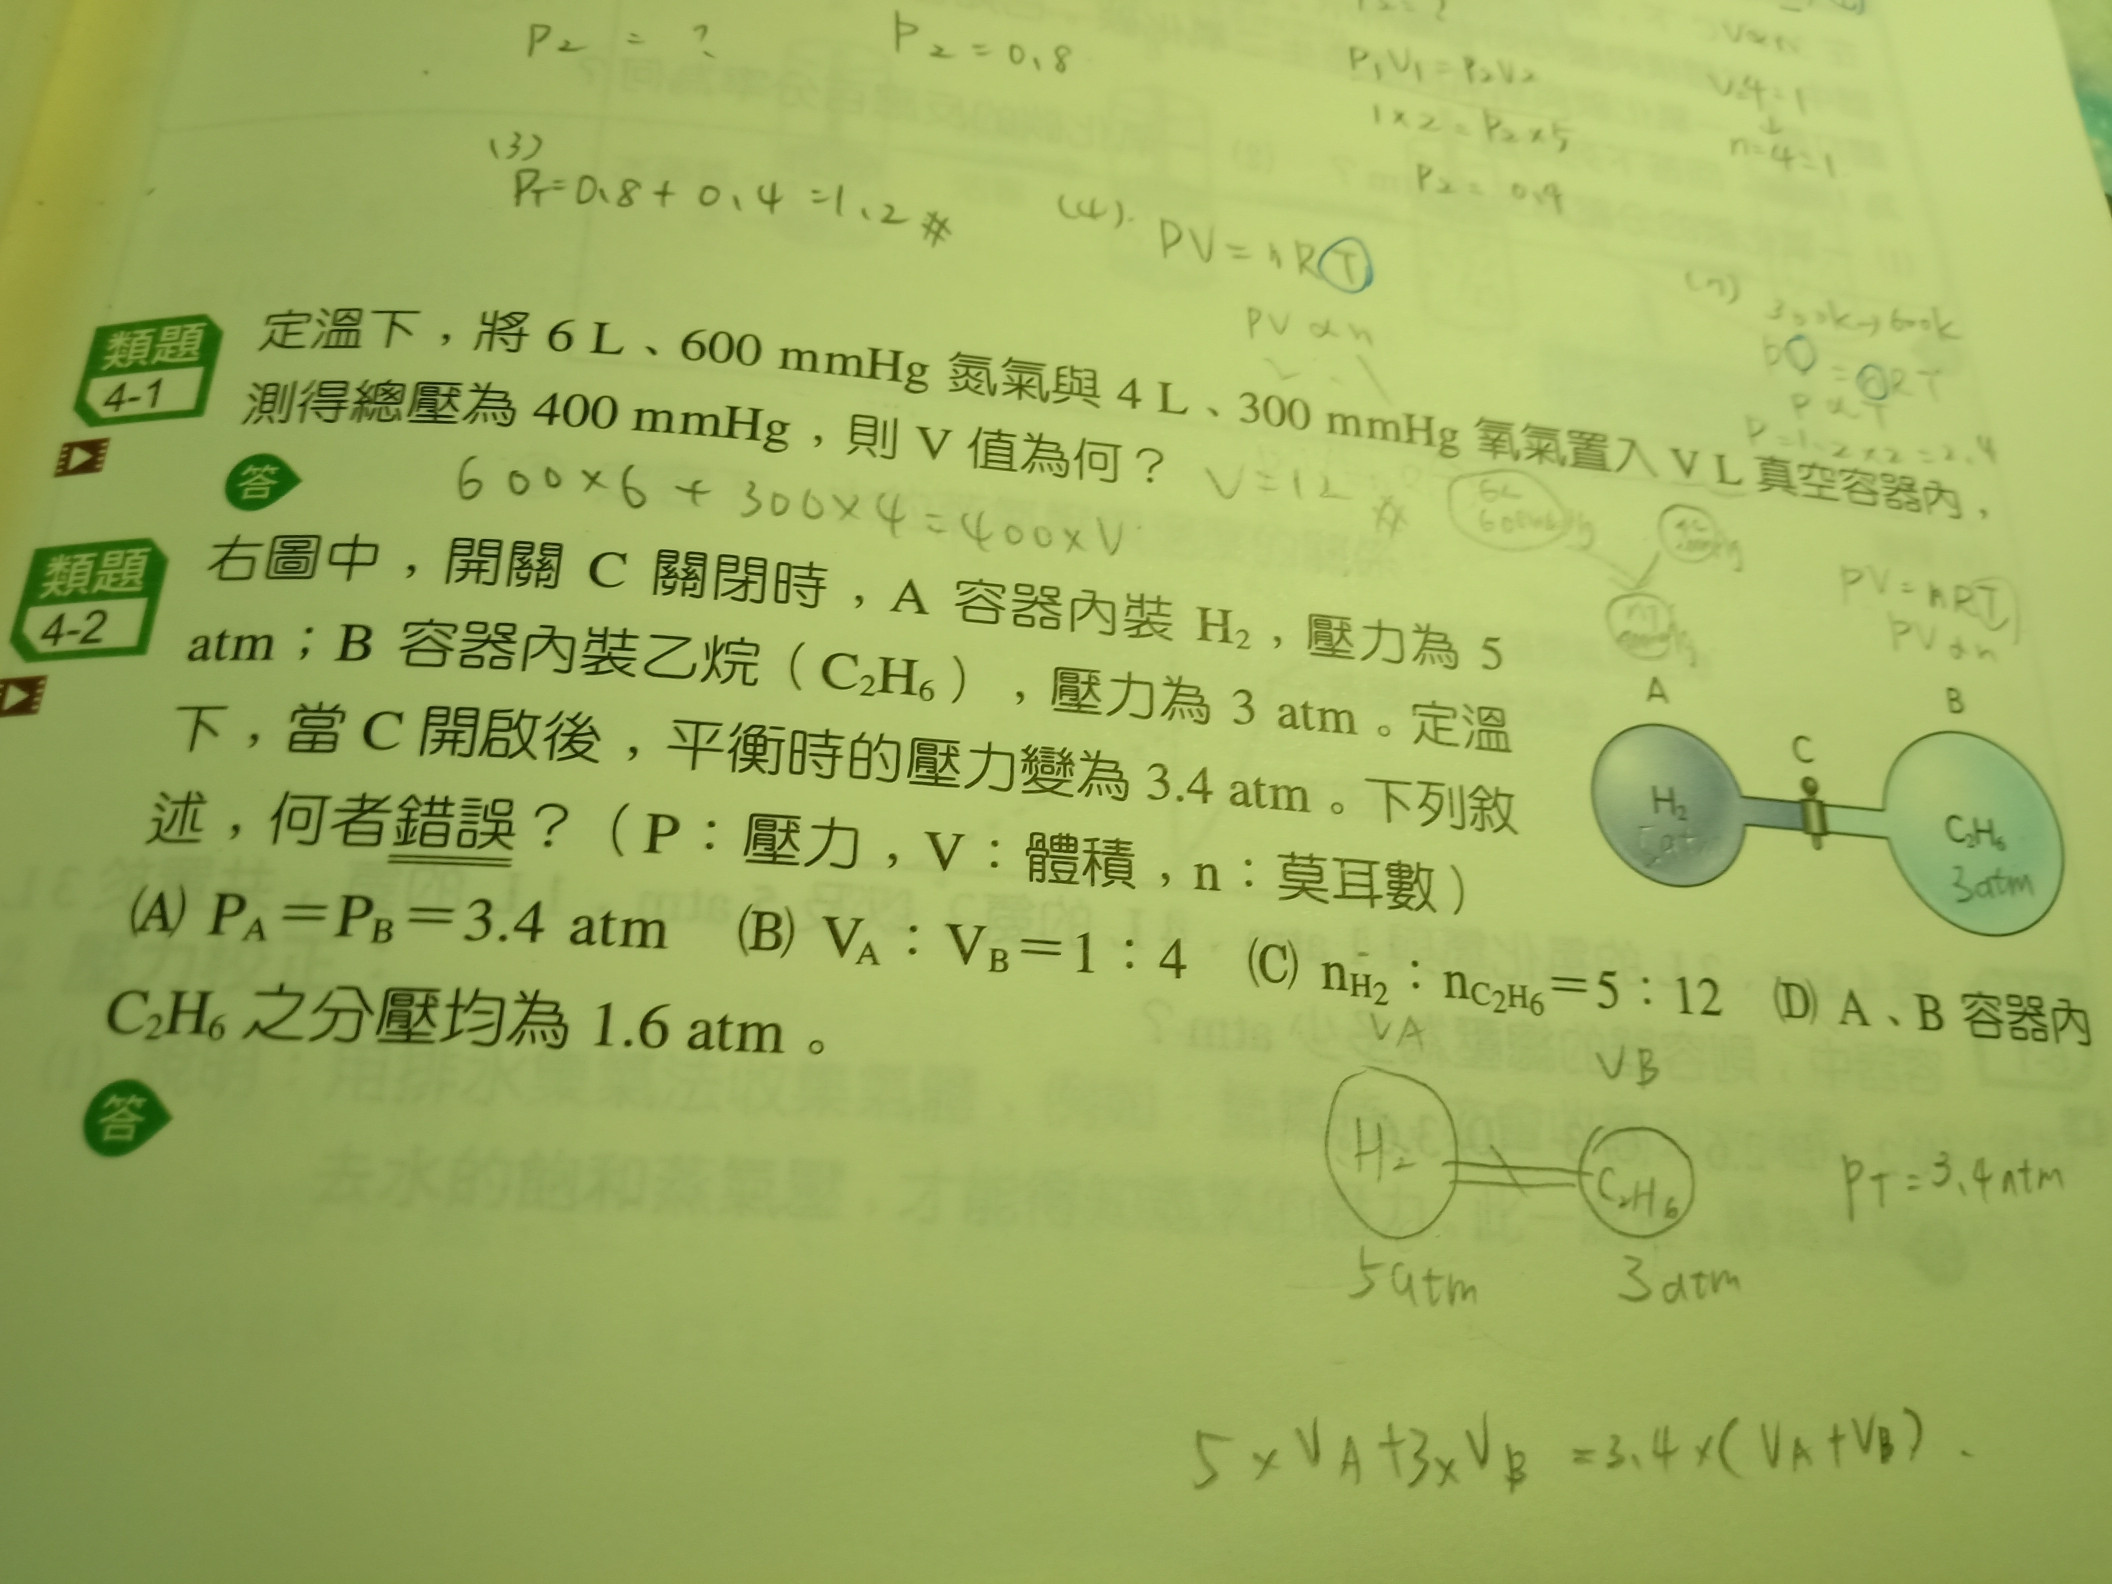 P2 = ?
P2 = 0.8
P1V1=P2V2
1×2=P2×5
P2=0.4
n=4=1
(3)
PT=0.8+0.4=1.2#
(4).
PV=nRT
PV∝n
300k→600k
P∝T
P=1.2×2=2.4
類題
4-1
定溫下，將 6 L、600 mmHg 氮氣與 4 L、300 mmHg 氧氣置入 V L 真空容器內，
測得總壓為 400 mmHg，則 V 值為何？
V=12#
答
600×6+300×4=400×V
PV=nRT
PV∝n
類題
4-2
右圖中，開關 C 關閉時，A 容器內裝 H2，壓力為 5
atm；B 容器內裝乙烷（C2H6），壓力為 3 atm。定溫
下，當 C 開啟後，平衡時的壓力變為 3.4 atm。下列敘
述，何者錯誤？（P：壓力，V：體積，n：莫耳數）
(A) PA＝PB＝3.4 atm (B) VA：VB＝1：4 (C) nH2：nC2H6＝5：12 (D) A、B 容器內
C2H6 之分壓均為 1.6 atm。
A
B
C
H2
5atm
C2H6
3atm
答
VA
VB
H2
C2H6
PT=3.4atm
5atm
3atm
5×VA+3×VB=3.4×(VA+VB).